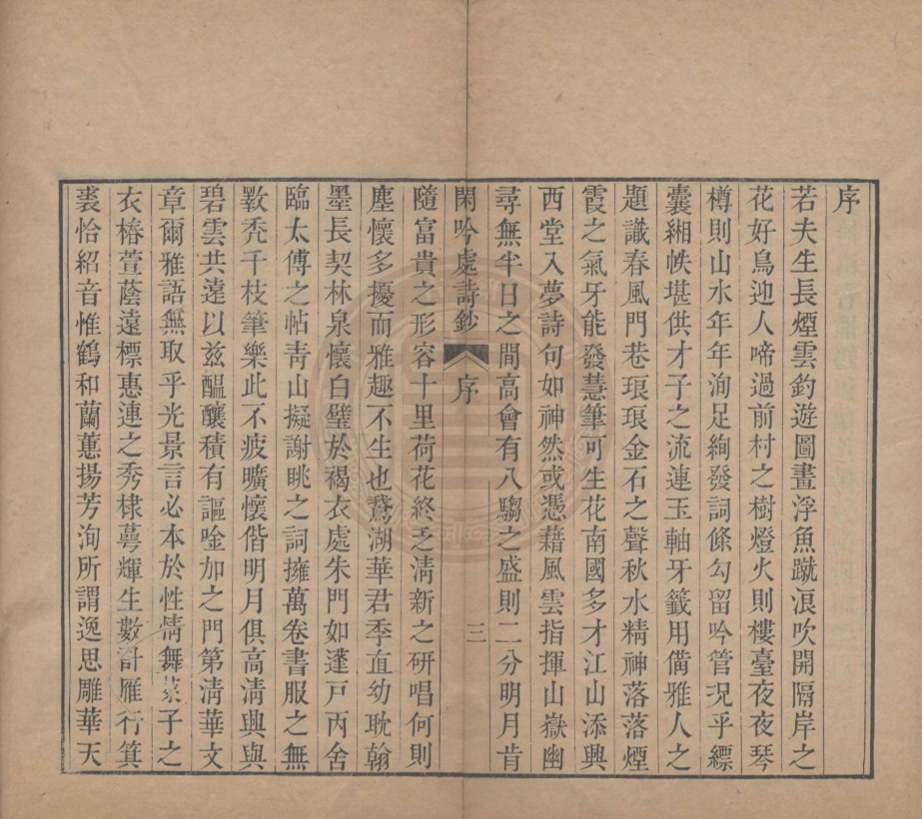 序
若夫生長煙雲釣遊圖畫浮魚蹴浪吹開隔岸之
花好鳥迎人啼過前村之樹燈火則樓臺夜夜琴
樽則山水年年洵足絢發詞條勾留吟管況乎縹
囊緗帙堪供才子之流連玉軸牙籤用備雅人之
題識春風門巷琅琅金石之聲秋水精神落落煙
霞之氣牙能發慧筆可生花南國多才江山添興
西堂入夢詩句如神然或憑藉風雲指揮山嶽幽
尋無半日之間高會有八騶之盛則二分明月肯
閑吟處詩鈔 序 三
隨富貴之形容十里荷花終乏清新之研唱何則
塵懷多擾而雅趣不生也鵞湖華君季直幼耽翰
墨長契林泉懷白璧於褐衣處朱門如蓬戸丙舍
臨太傅之帖靑山擬謝眺之詞擁萬卷書服之無
斁禿千枝筆樂此不疲曠懷偕明月俱高淸興與
碧雲共遠以兹醞釀積有謳唫加之門第淸華文
章爾雅語無取乎光景言必本於性情舞菜子之
衣椿萱蔭遠標惠連之秀棣蕚輝生數許雁行箕
裘恰紹音惟鶴和蘭蕙揚芳洵所謂逸思雕華天